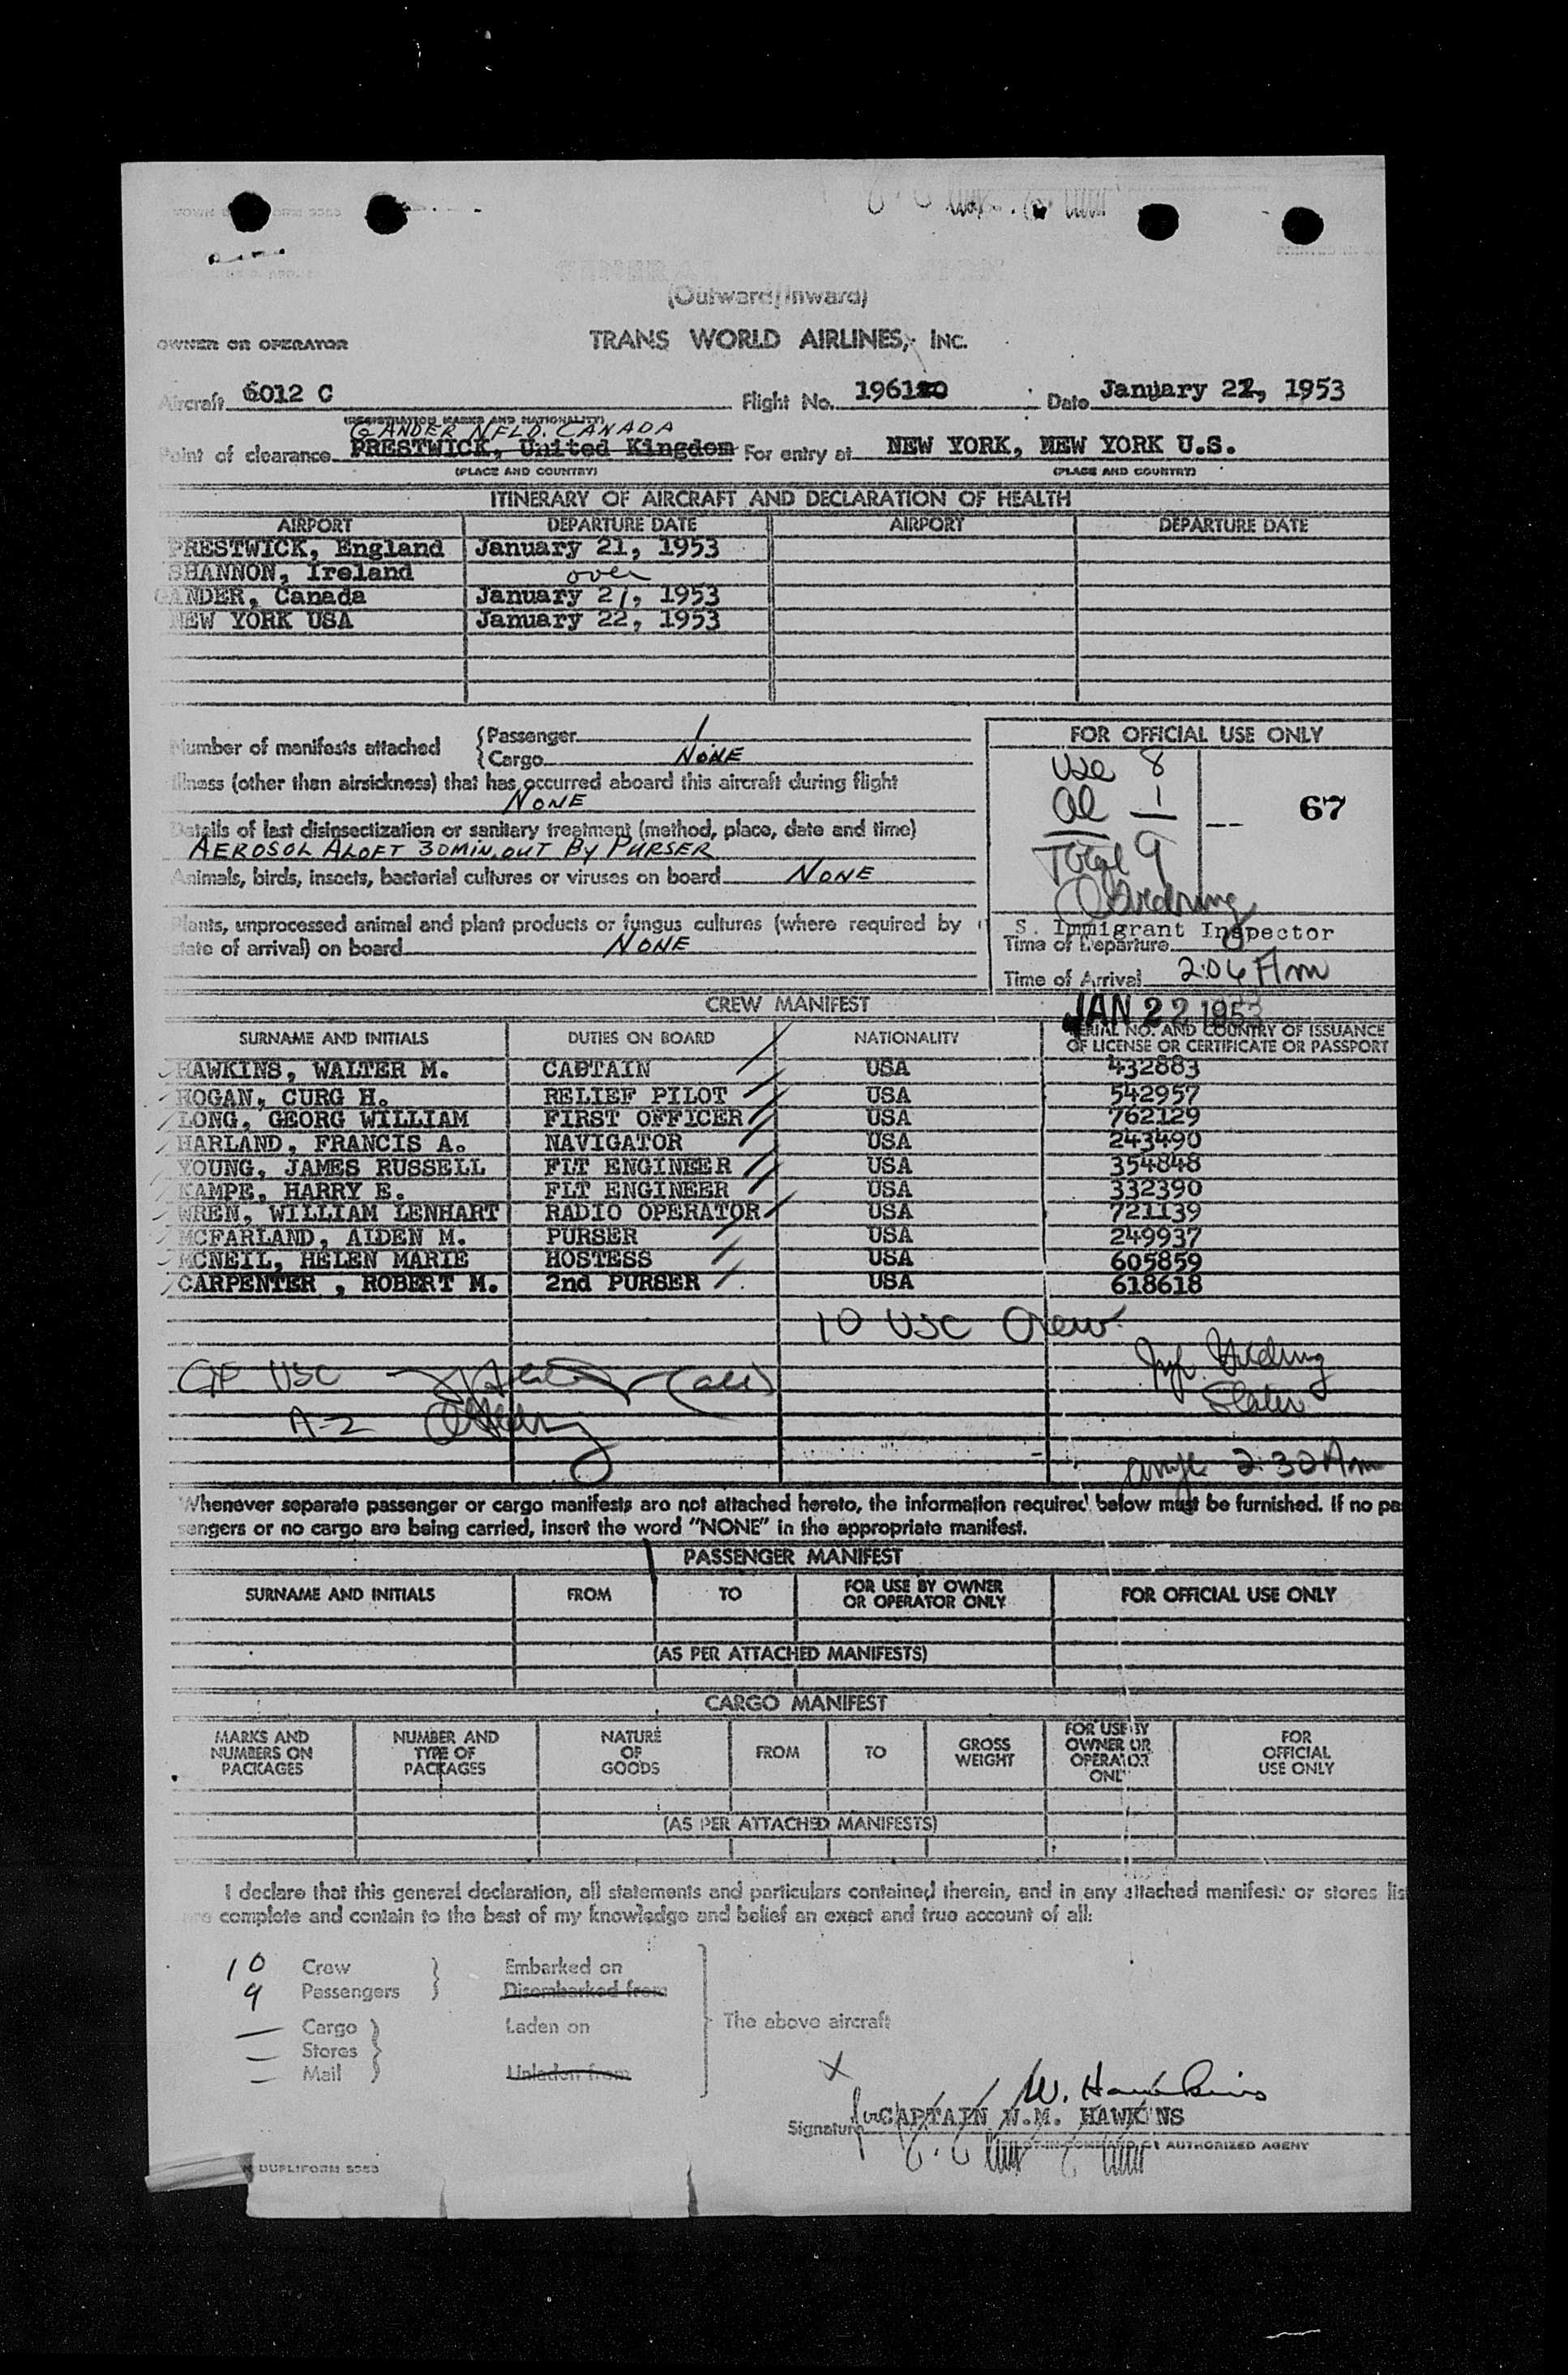 (Outward/Inward)
OWNER OR OPERATOR TRANS WORLD AIRLINES, INC.
Aircraft 6012 C Flight No. 196120 Date January 22, 1953
(REGISTRATION MARKS AND NATIONALITY)
GANDER NFLD. CANADA
Point of clearance PRESTWICK, United Kingdom For entry at NEW YORK, NEW YORK U.S.
(PLACE AND COUNTRY) (PLACE AND COUNTRY)
ITINERARY OF AIRCRAFT AND DECLARATION OF HEALTH
AIRPORT DEPARTURE DATE AIRPORT DEPARTURE DATE
PRESTWICK, England January 21, 1953
SHANNON, Ireland over
GANDER, Canada January 21, 1953
NEW YORK USA January 22, 1953
Number of manifests attached {Passenger 1
{Cargo NONE
Illness (other than airsickness) that has occurred aboard this aircraft during flight
NONE
Details of last disinsectization or sanitary treatment (method, place, date and time)
AEROSOL ALOFT 30MIN. OUT BY PURSER
Animals, birds, insects, bacterial cultures or viruses on board NONE
Plants, unprocessed animal and plant products or fungus cultures (where required by
state of arrival) on board NONE
FOR OFFICIAL USE ONLY
USC 8
Al 1
67
Total 9
S. Immigrant Inspector
Time of Departure
Time of Arrival 2:06 Am
JAN 22 1953
CREW MANIFEST
SURNAME AND INITIALS DUTIES ON BOARD NATIONALITY SERIAL NO. AND COUNTRY OF ISSUANCE
OF LICENSE OR CERTIFICATE OR PASSPORT
HAWKINS, WALTER M. CAPTAIN USA 432883
HOGAN, CURG H. RELIEF PILOT USA 542957
LONG, GEORG WILLIAM FIRST OFFICER USA 762129
HARLAND, FRANCIS A. NAVIGATOR USA 243490
YOUNG, JAMES RUSSELL FLT ENGINEER USA 354848
KAMPE, HARRY E. FLT ENGINEER USA 332390
WREN, WILLIAM LENHART RADIO OPERATOR USA 721139
MCFARLAND, AIDEN M. PURSER USA 249937
MCNEIL, HELEN MARIE HOSTESS USA 605859
CARPENTER , ROBERT M. 2nd PURSER USA 618618
10 USC Crew
USC
A-2
2:30 Am
Whenever separate passenger or cargo manifests are not attached hereto, the information required below must be furnished. If no pa
sengers or no cargo are being carried, insert the word "NONE" in the appropriate manifest.
PASSENGER MANIFEST
SURNAME AND INITIALS FROM TO FOR USE BY OWNER OR OPERATOR ONLY FOR OFFICIAL USE ONLY
(AS PER ATTACHED MANIFESTS)
CARGO MANIFEST
MARKS AND NUMBERS ON PACKAGES NUMBER AND TYPE OF PACKAGES NATURE OF GOODS FROM TO GROSS WEIGHT FOR USE BY OWNER OR OPERATOR ONLY FOR OFFICIAL USE ONLY
(AS PER ATTACHED MANIFESTS)
I declare that this general declaration, all statements and particulars contained therein, and in any attached manifests or stores lis
are complete and contain to the best of my knowledge and belief an exact and true account of all:
10 Crew Embarked on
9 Passengers Disembarked from
— Cargo Laden on The above aircraft
— Stores
— Mail Unladen from
X W. Hawkins
Signature for CAPTAIN W.M. HAWKINS
PILOT-IN-COMMAND OR AUTHORIZED AGENT
DUPLIFORM